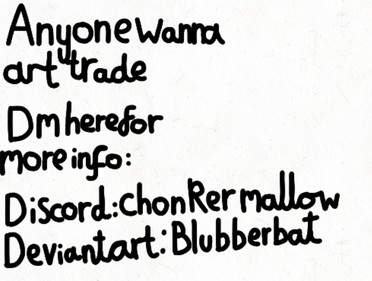 Anyone wanna
art trade
Dm here for
more info:
Discord:chonkermallow
Deviantart:Blubberbat